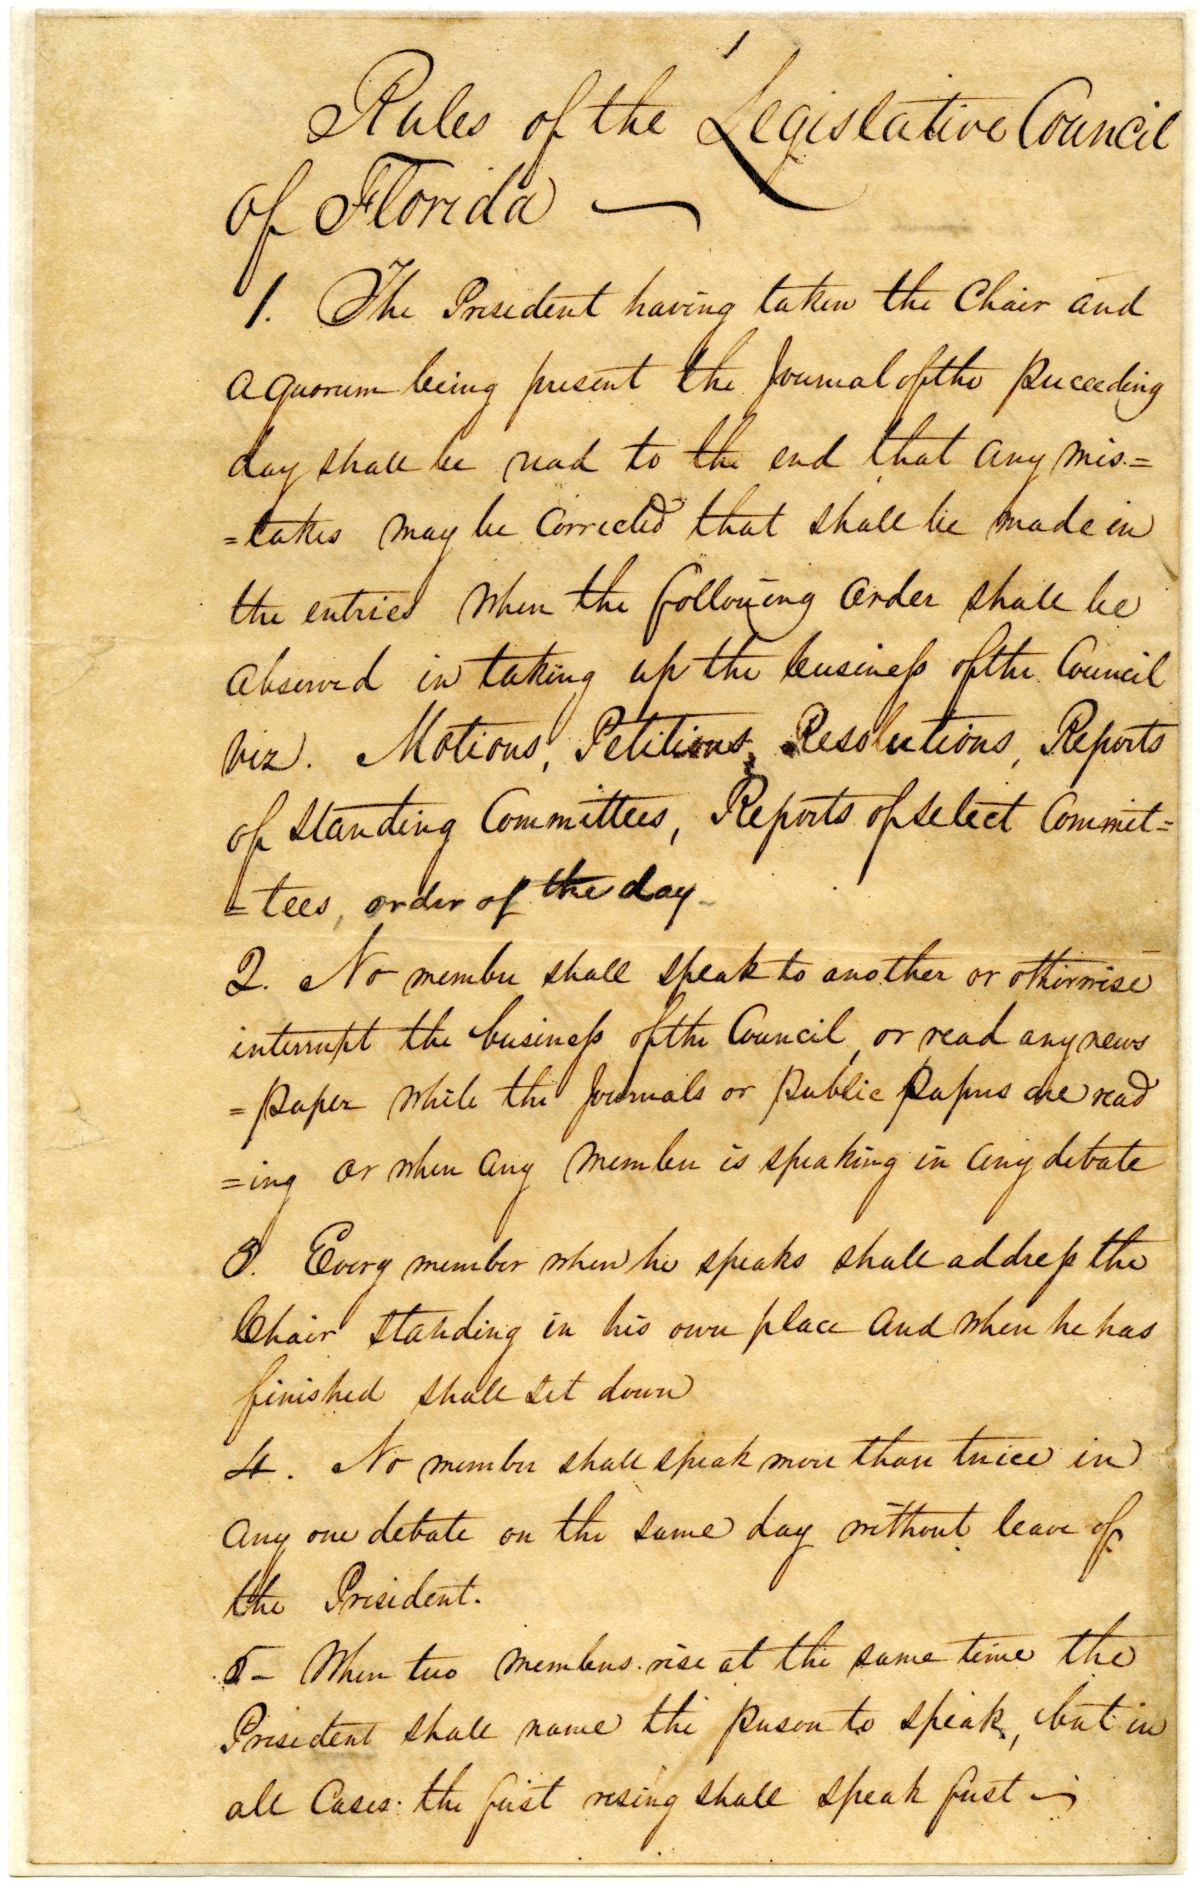 1
Rules of the Legislative Council
of Florida —
1. The President having taken the Chair and
a quorum being present the Journal of the preceeding
day shall be read to the end that any mis=
=takes may be corrected that shall be made in
the entries when the following order shall be
observed in taking up the business of the Council
viz. Motions, Petitions, Resolutions, Reports
of standing Committees, Reports of select Commit=
=tees, order of the day
2. No member shall speak to another or otherwise
interrupt the business of the Council, or read any news
=paper while the Journals or public papers are read
=ing or when any member is speaking in any debate
3. Every member when he speaks shall address the
Chair standing in his own place and when he has
finished shall set down
4. No member shall speak more than twice in
any one debate on the same day without leave of
the President.
5— When two members rise at the same time the
President shall name the person to speak, but in
all Cases the first rising shall speak first —